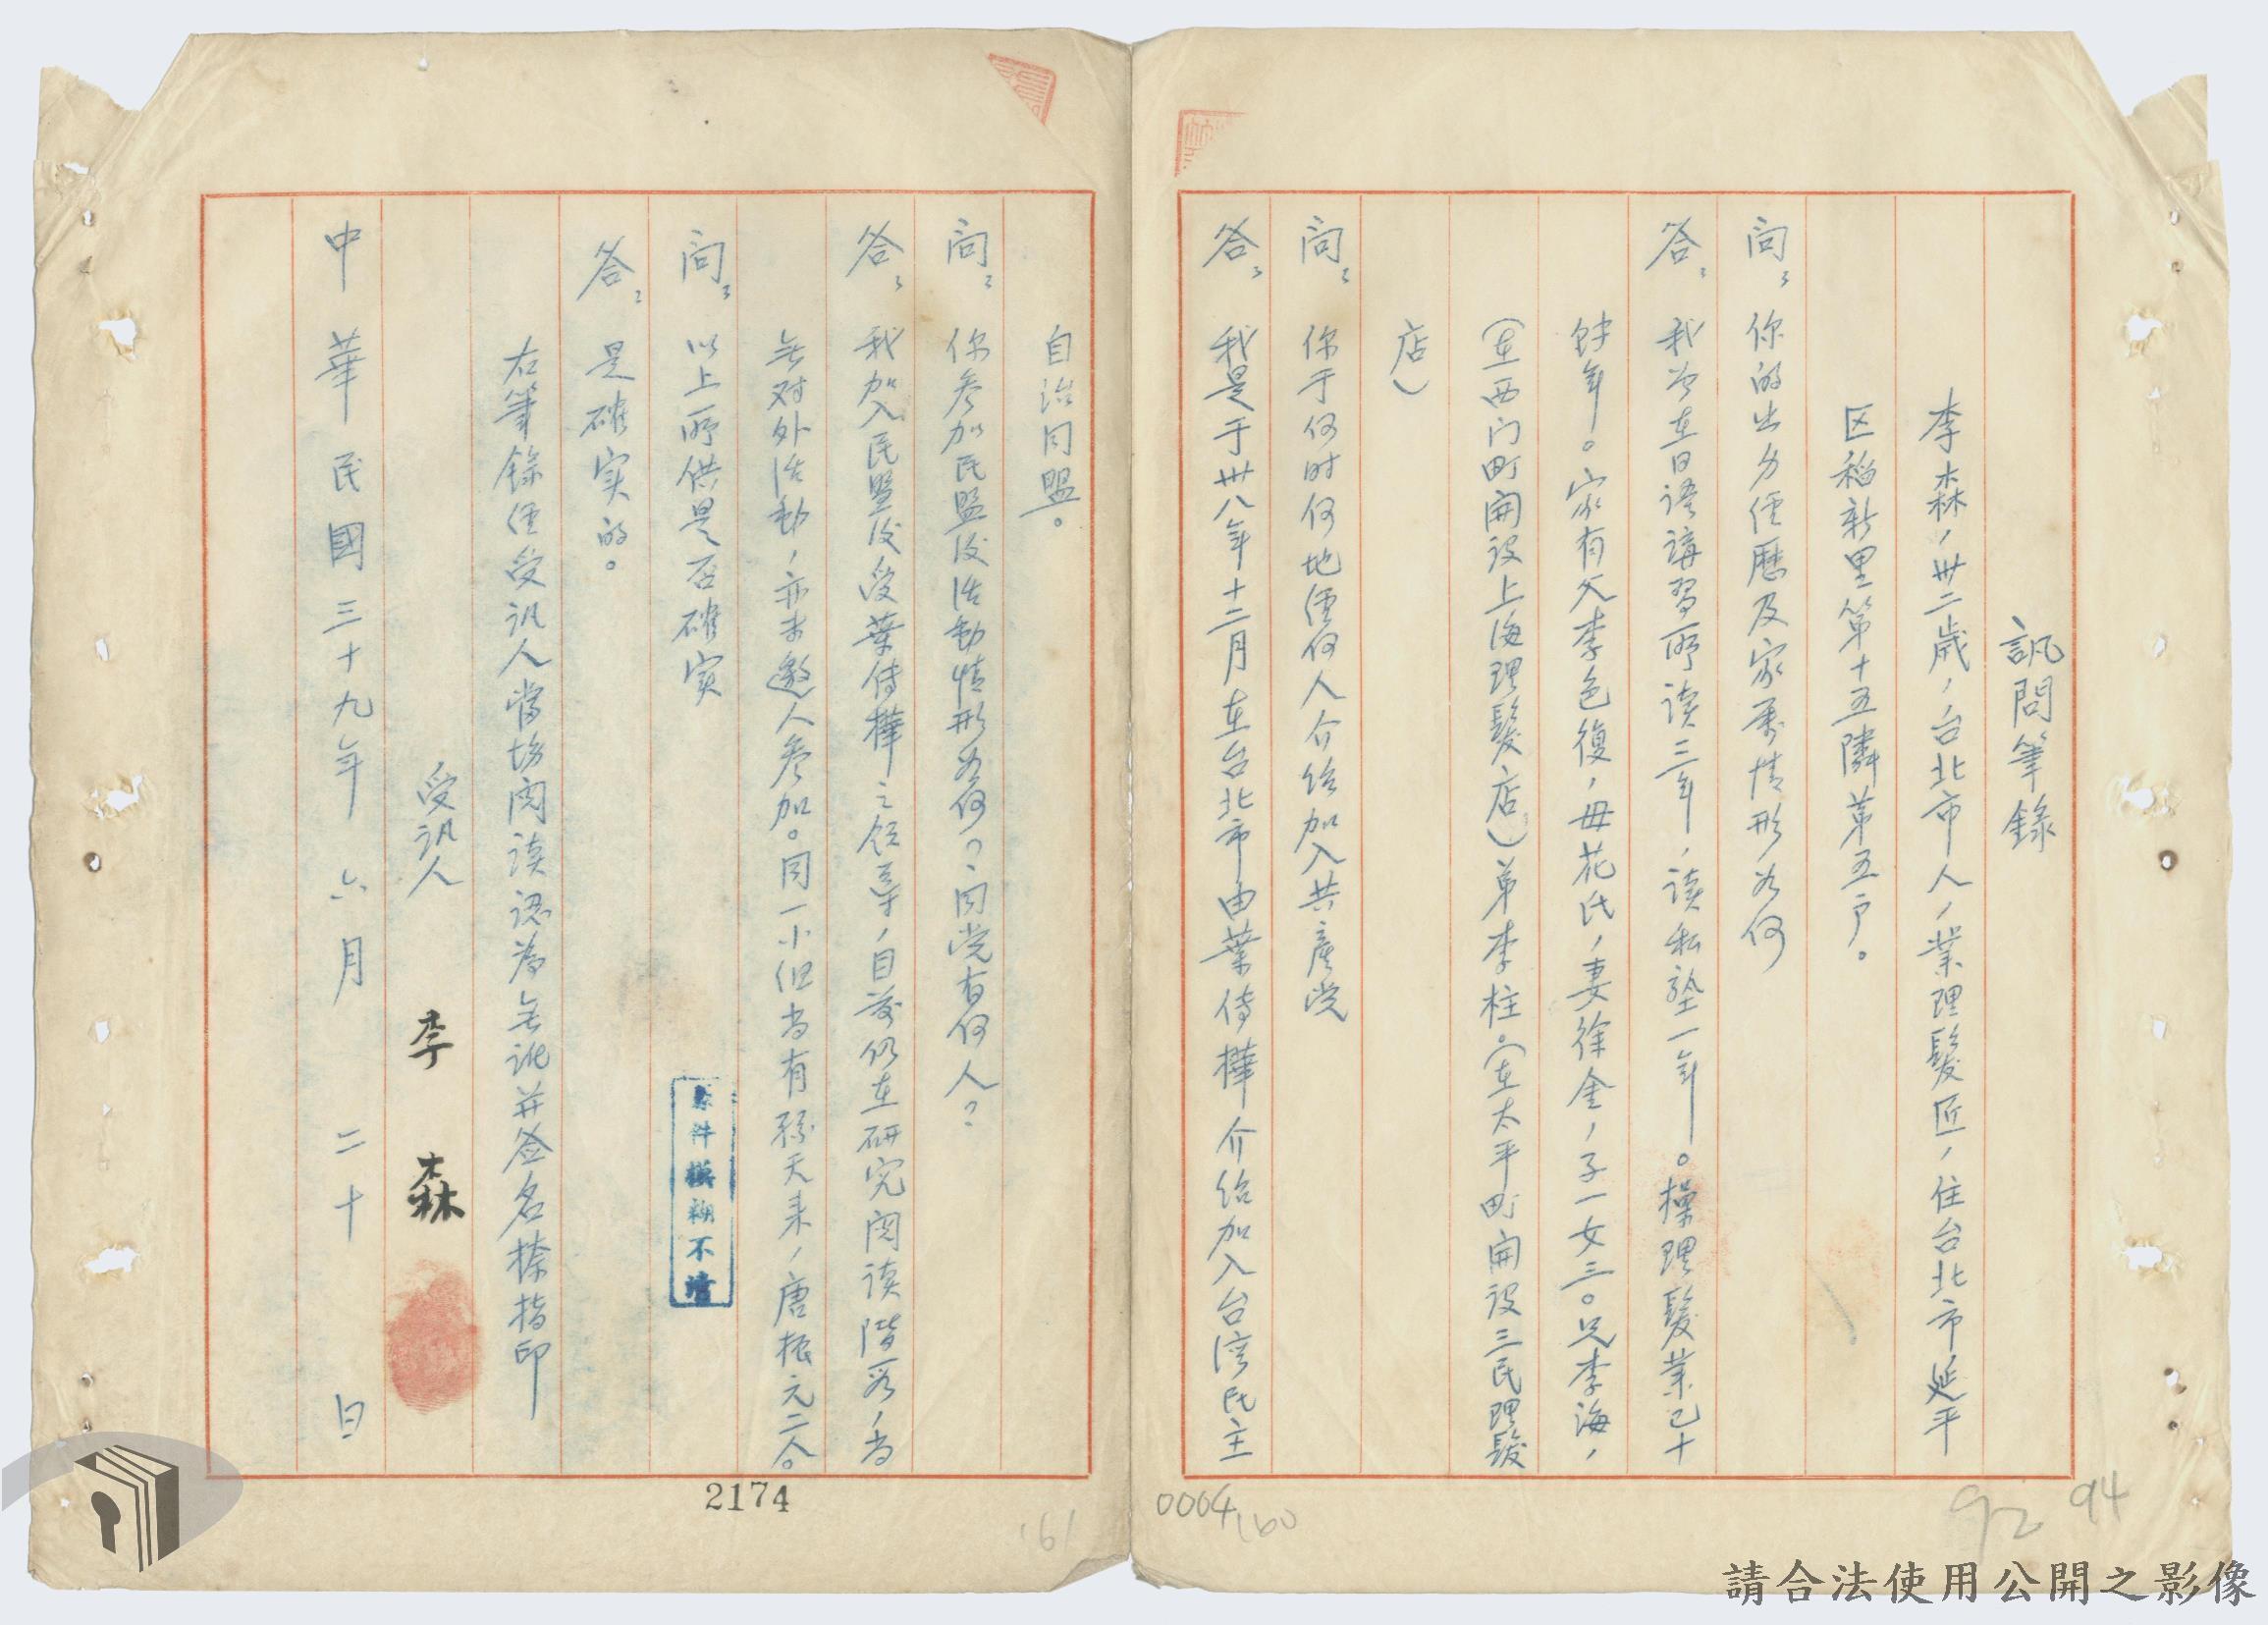 訊問筆錄
李森，卅二歲，台北市人，業理髮匠，住台北市延平
区稻新里第十五隣第五户。
問：你的出身経歷及家属情形为何
答：我曾在日语講習所读三年，读私塾一年。操理髮業已十
餘年。家有父李色復，母花氏，妻徐金，子一女三。兄李海，
（在西门町開设上海理髮店）弟李柱。（在太平町開设三民理髮
店）
問：你于何时何地経何人介绍加入共產党
答：我是于卅八年十二月在台北市由葉傳樺介绍加入台湾民主
自治同盟。
問：你参加民盟后活動情形为何？同党有何人？
答：我加入民盟后受葉传樺之领导，目前仍在研究阅读階段，尚
无对外活動，亦未邀人参加。同一小组尚有孫天来，唐振元二人。
問：以上所供是否確实
答：是確实的。
右筆錄経受讯人當场阅读認為无讹并签名捺指印
受讯人 李森
中華民國三十九年六月二十日
原件模糊不清
2174
161
0004
160
92
94
請合法使用公開之影像